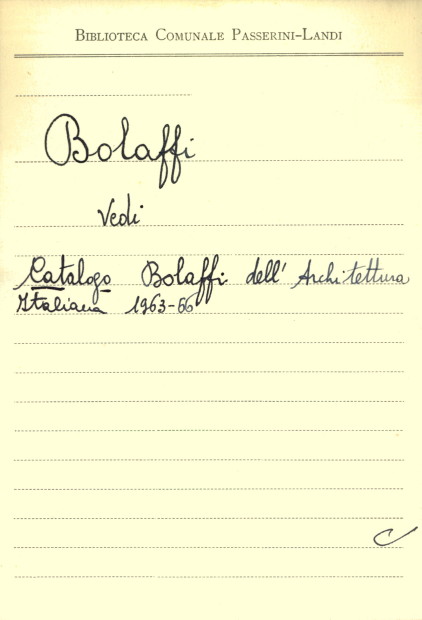 BIBLIOTECA COMUNALE PASSERINI-LANDI
Bolaffi
Vedi
Catalogo Bolaffi dell' Architettura
Italiana 1963-66